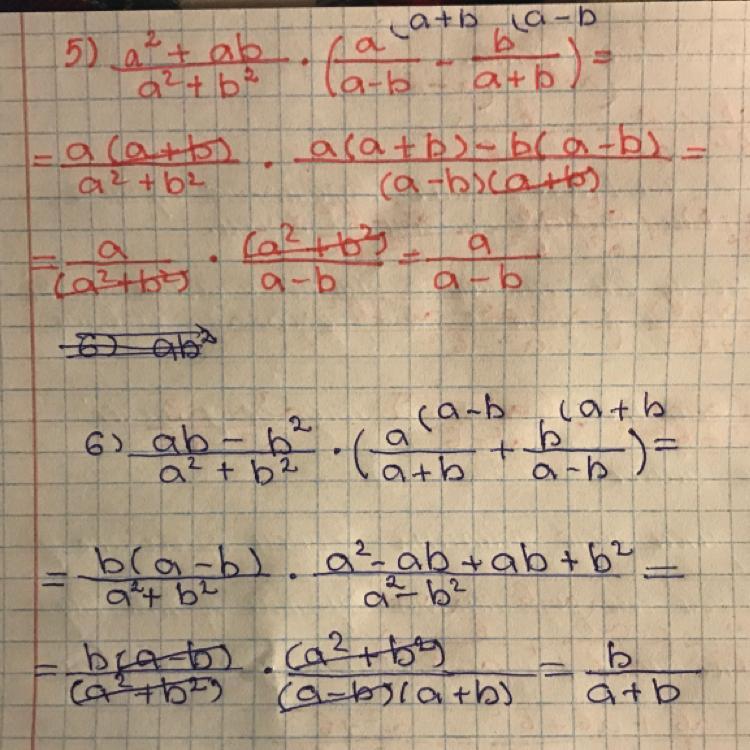 5) (a² + ab)/(a² + b²) · (a⁽ᵃ⁺ᵇ/(a-b) - b⁽ᵃ⁻ᵇ/(a+b)) =
= a(a+b)/(a² + b²) · (a(a+b) - b(a-b))/((a-b)(a+b)) =
= a/(a²+b²) · (a²+b²)/(a-b) = a/(a-b)
6) ab²
6) (ab - b²)/(a² + b²) · (a⁽ᵃ⁻ᵇ/(a+b) + b⁽ᵃ⁺ᵇ/(a-b)) =
= b(a-b)/(a² + b²) · (a² - ab + ab + b²)/(a² - b²) =
= b(a-b)/(a²+b²) · (a²+b²)/((a-b)(a+b)) = b/(a+b)